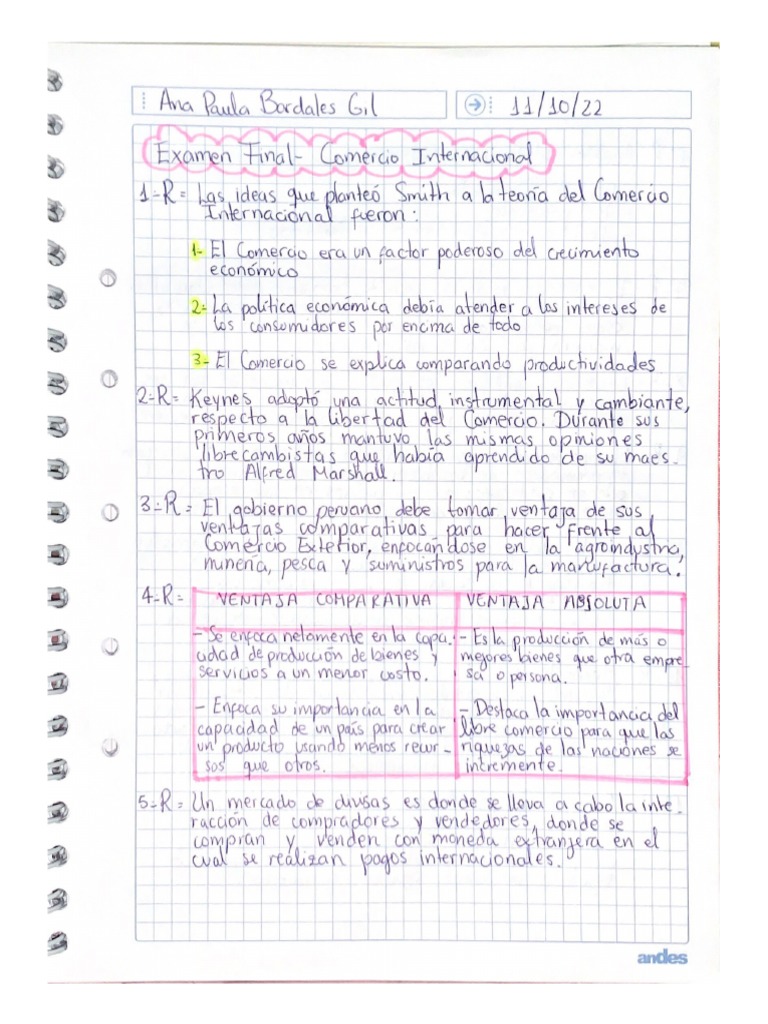 Ana Paula Bardales Gil
11/10/22
Examen Final- Comercio Internacional
1-R= Las ideas que planteó Smith a la teoría del Comercio
Internacional fueron:
1- El Comercio era un factor poderoso del crecimiento
económico
2- La política económica debía atender a los intereses de
los consumidores por encima de todo
3- El Comercio se explica comparando productividades
2-R= Keynes adoptó una actitud instrumental y cambiante,
respecto a la libertad del Comercio. Durante sus
primeros años mantuvo las mismas opiniones
librecambistas que había aprendido de su maes-
tro Alfred Marshall.
3-R= El gobierno peruano debe tomar ventaja de sus
ventajas comparativas para hacer frente al
Comercio Exterior, enfocándose en la agroindustria,
minería, pesca y suministros para la manufactura.
4-R=
VENTAJA COMPARATIVA
- Se enfoca netamente en la capa-
cidad de producción de bienes y
servicios a un menor costo.
- Enfoca su importancia en la
capacidad de un país para crear
un producto usando menos recur-
sos que otros.
VENTAJA ABSOLUTA
- Es la producción de más o
mejores bienes que otra empre
sa o persona.
- Destaca la importancia del
libre comercio para que las
riquezas de las naciones se
incremente.
5-R= Un mercado de divisas es donde se lleva a cabo la inte-
racción de compradores y vendedores, donde se
compran y venden con moneda extranjera en el
cual se realizan pagos internacionales.
andes